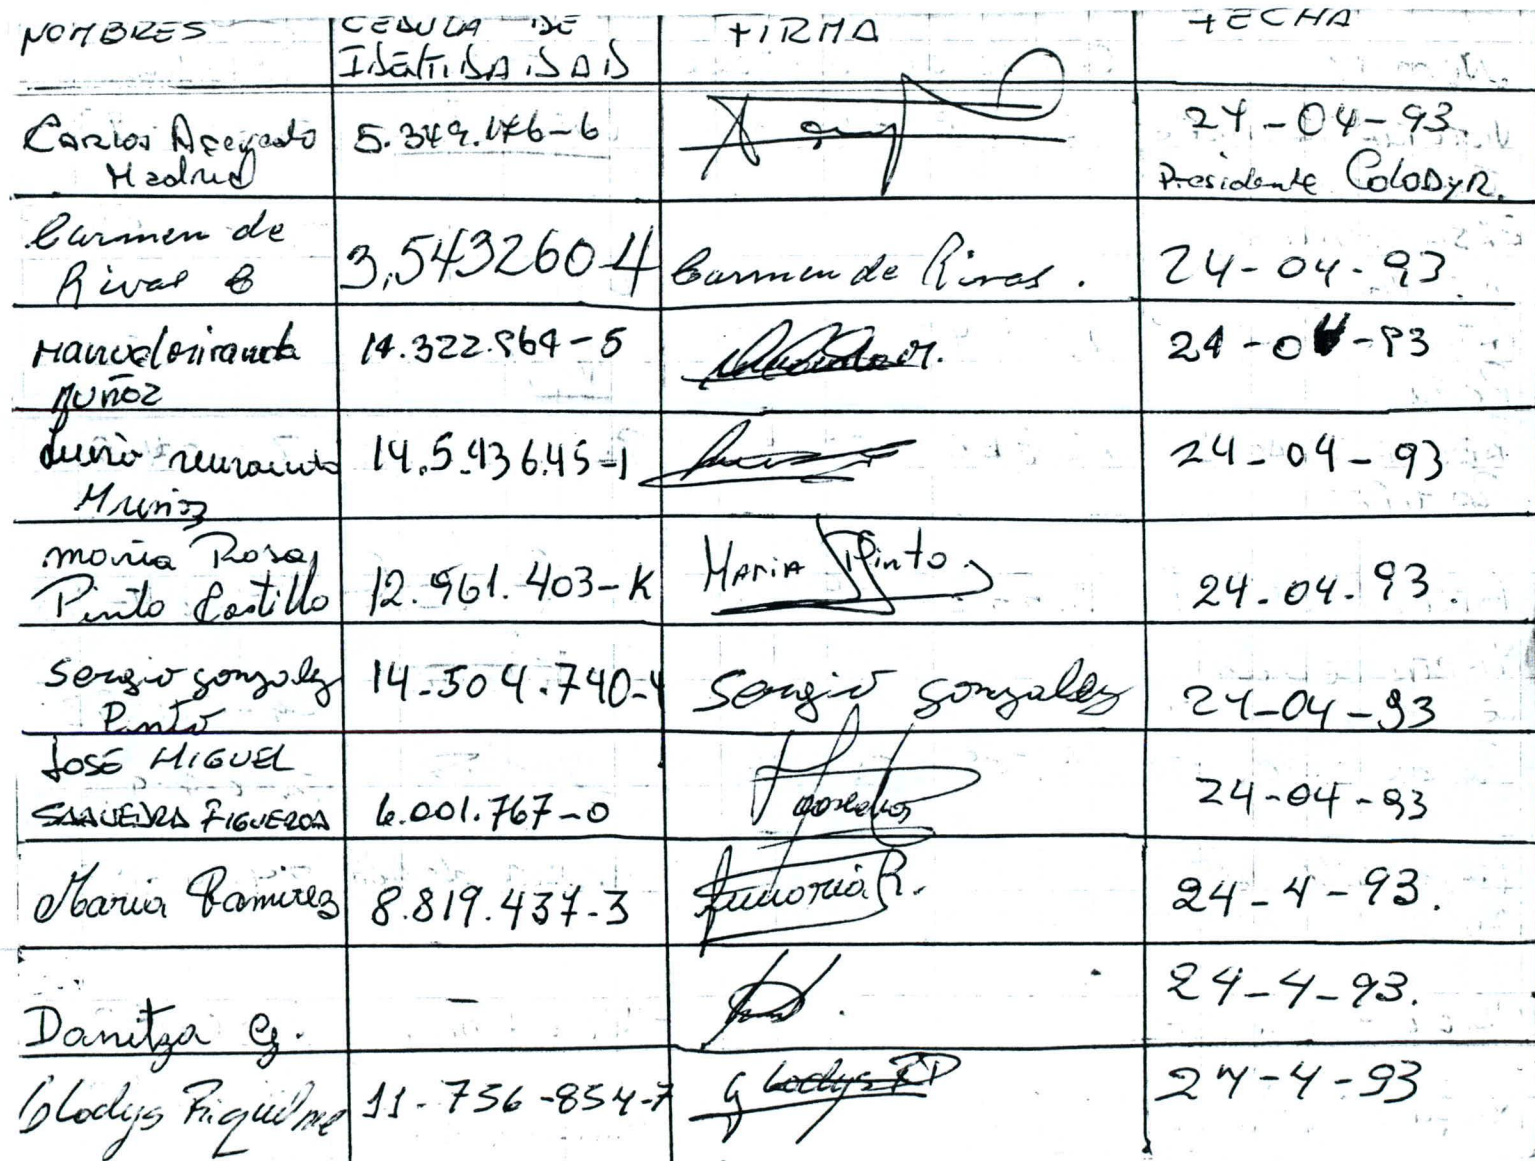 NOMBRES CEDULA DE IDENTIDAD FIRMA FECHA
Carlos Acevedo Madrid 5.349.176-6 24-04-93.
Presidente CoLoDyR.
Carmen de Rivas G 3,543260-4 Carmen de Rivas. 24-04-93
Manuel miranda Muñoz 14.322.964-5 24-04-93
miranda Muñoz 14.5.43645-1 24-04-93
maria Rosa Pinto Castillo 12.961.403-K Maria Pinto. 24-04-93.
Sergio gonzalez Pinto 14-504.740-4 Sergio gonzalez 24-04-93
JOSÉ MIGUEL SAAVEDRA FIGUEROA 6.001.767-0 24-04-93
Maria Ramirez 8.819.437-3 24-4-93.
Danitza G. - 24-4-93.
Gladys Riquelme 11-756-854-7 Gladys 24-4-93